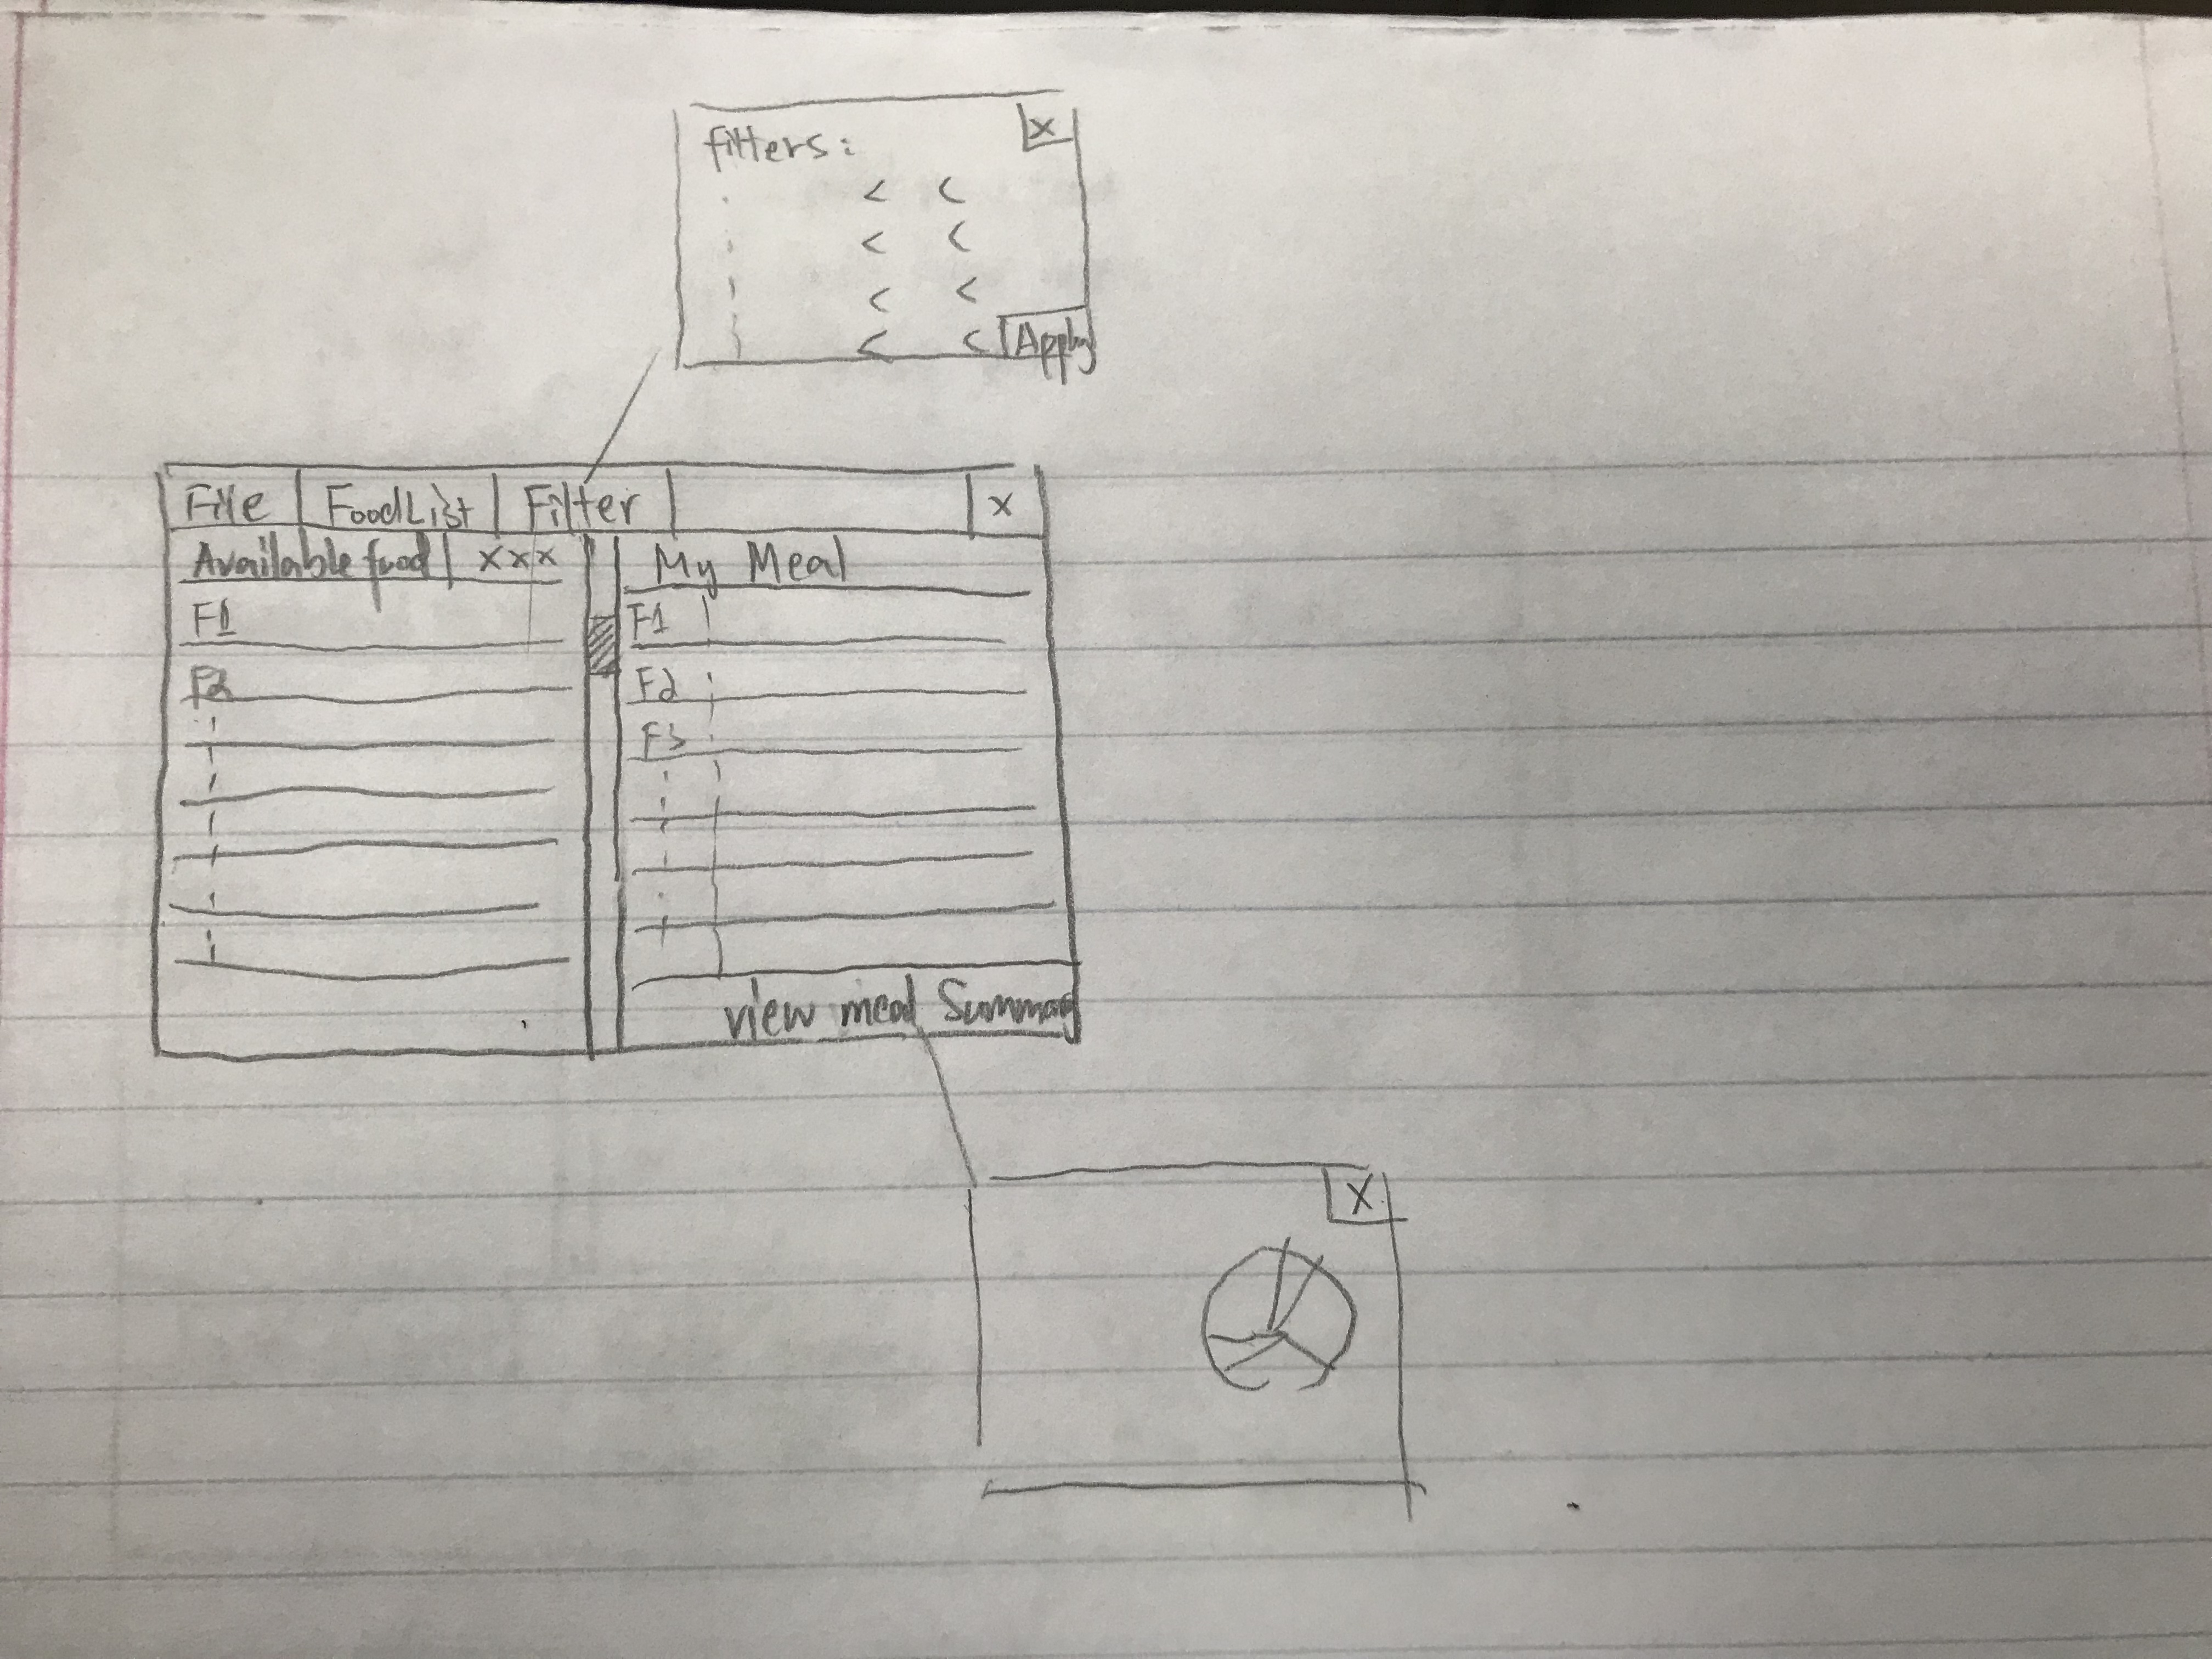 filters: X
< <
< <
< <
< < Apply
File FoodList Filter X
Available food xxx My Meal
F1 F1
F2 F2
F3
view meal Summary
X